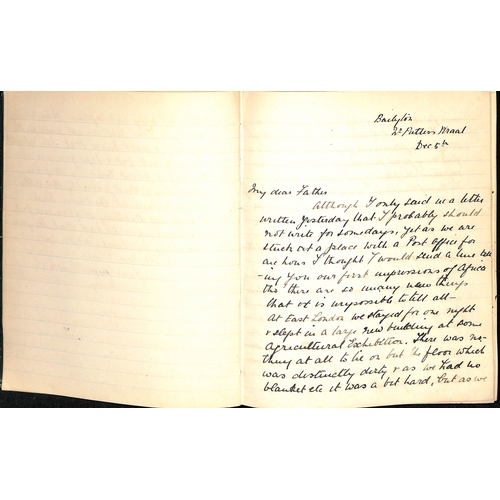 Baileyton
Nr Putters Kraal
Dec 5th
My dear Father
Although I only said in a letter
written yesterday that I probably should
not write for somedays, yet as we are
stuck at a place with a Post Office for
an hour I thought I would send a line tell
-ing you our first impressions of Africa
tho' there are so many new things
that it is impossible to tell all -
At East London we stayed for one night
& slept in a large new building at some
Agricultural Exhibition. There was no-
thing at all to lie on but the floor which
was distinctly dirty & as we had no
blanket etc it was a bit hard, but as we